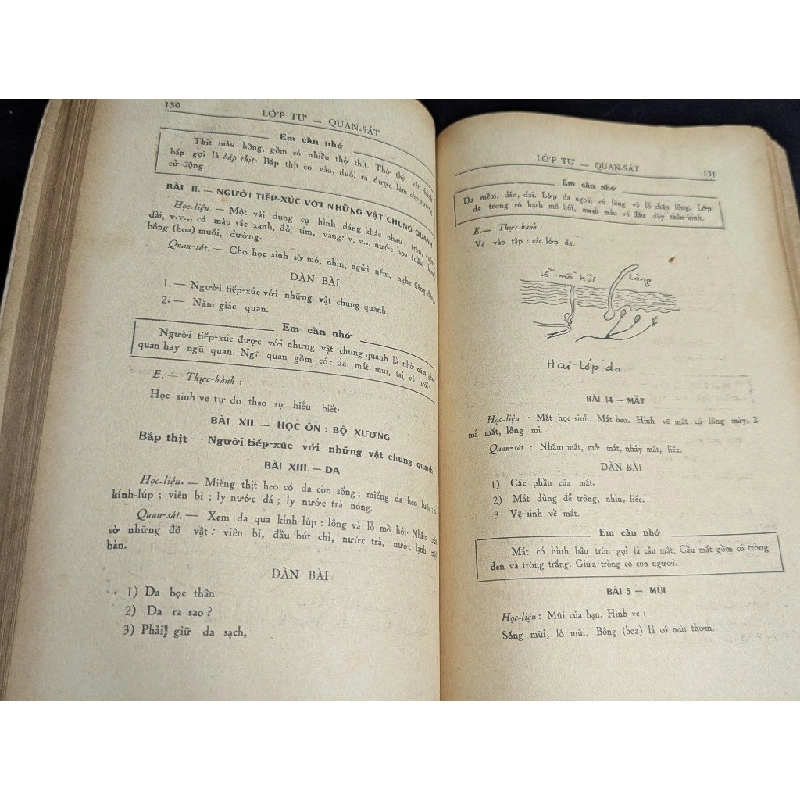 130
LỚP TƯ — QUAN-SÁT
Em cần nhớ
Thịt màu hồng, gồm có nhiều thớ thịt. Thớ thịt
bắp gọi là bắp thịt. Bắp thịt co vào, duỗi ra được làm cho
cử động
BÀI II. — NGƯỜI TIẾP-XÚC VỚI NHỮNG VẬT CHUNG QUANH
Học-liệu. — Một vài dụng cụ hình dáng khác nhau,
dài, v.v... có màu sắc xanh, đỏ, tím, vàng v.v... nước hoa
bông (hoa) muối, đường.
Quan-sát. — Cho học sinh sờ mó, nhìn, ngửi nếm, nghe
DÀN BÀI
1. — Người tiếp-xúc với những vật chung quanh.
2. — Năm giác quan.
Em cần nhớ
Người tiếp-xúc được với những vật chung quanh là nhờ
quan hay ngũ quan Ngũ quan gồm có: da mắt mũi, tai và
E. — Thực-hành :
Học sinh vẽ tự do theo sự hiểu biết.
BÀI XII — HỌC ÔN : BỘ XƯƠNG
Bắp thịt Người tiếp-xúc với những vật chung quanh.
BÀI XIII. — DA
Học-liệu. — Miếng thịt heo có da còn sống ; miếng da heo
kính-lúp ; viên bi ; ly nước đá ; ly nước trà nóng.
Quan-sát. — Xem da qua kính lúp : lông và lỗ mồ hôi
sờ những đồ vật : viên bi, đầu bút chì, nước trà, nước lạnh
bàn.
DÀN BÀI
1) Da bọc thân
2) Da ra sao ?
3) Phải giữ da sạch,
LỚP TƯ — QUAN-SÁT
131
Em cần nhớ
Da mềm, dẻo, dai. Lớp da ngoài có lông và lỗ chân lông. Lớp
da trong có hạch mồ hôi, mạch máu và đầu dây thần kinh.
E.— Thực-hành
Vẽ vào tập : các lớp da.
lỗ mồ hôi
lông
Hai lớp da
BÀI 14 — MẮT
Học-liệu : Mắt học sinh. Mắt heo. Hình vẽ mắt có lông mày, 2
mí mắt, lông mi.
Quan-sát : Nhắm mắt, mở mắt, nháy mắt, liếc.
DÀN BÀI
1) Các phần của mắt.
2) Mắt dùng để trông, nhìn, liếc.
3 Vệ sinh về mắt.
Em cần nhớ
Mắt có hình bầu tròn gọi là cầu mắt. Cầu mắt gồm có tròng
đen và tròng trắng. Giữa tròng có con ngươi.
BÀI 5 — MŨI
Học-liệu : Mũi của bạn. Hình vẽ :
Sống mũi, lỗ mũi. Bông (hoa) lá có mùi thơm.